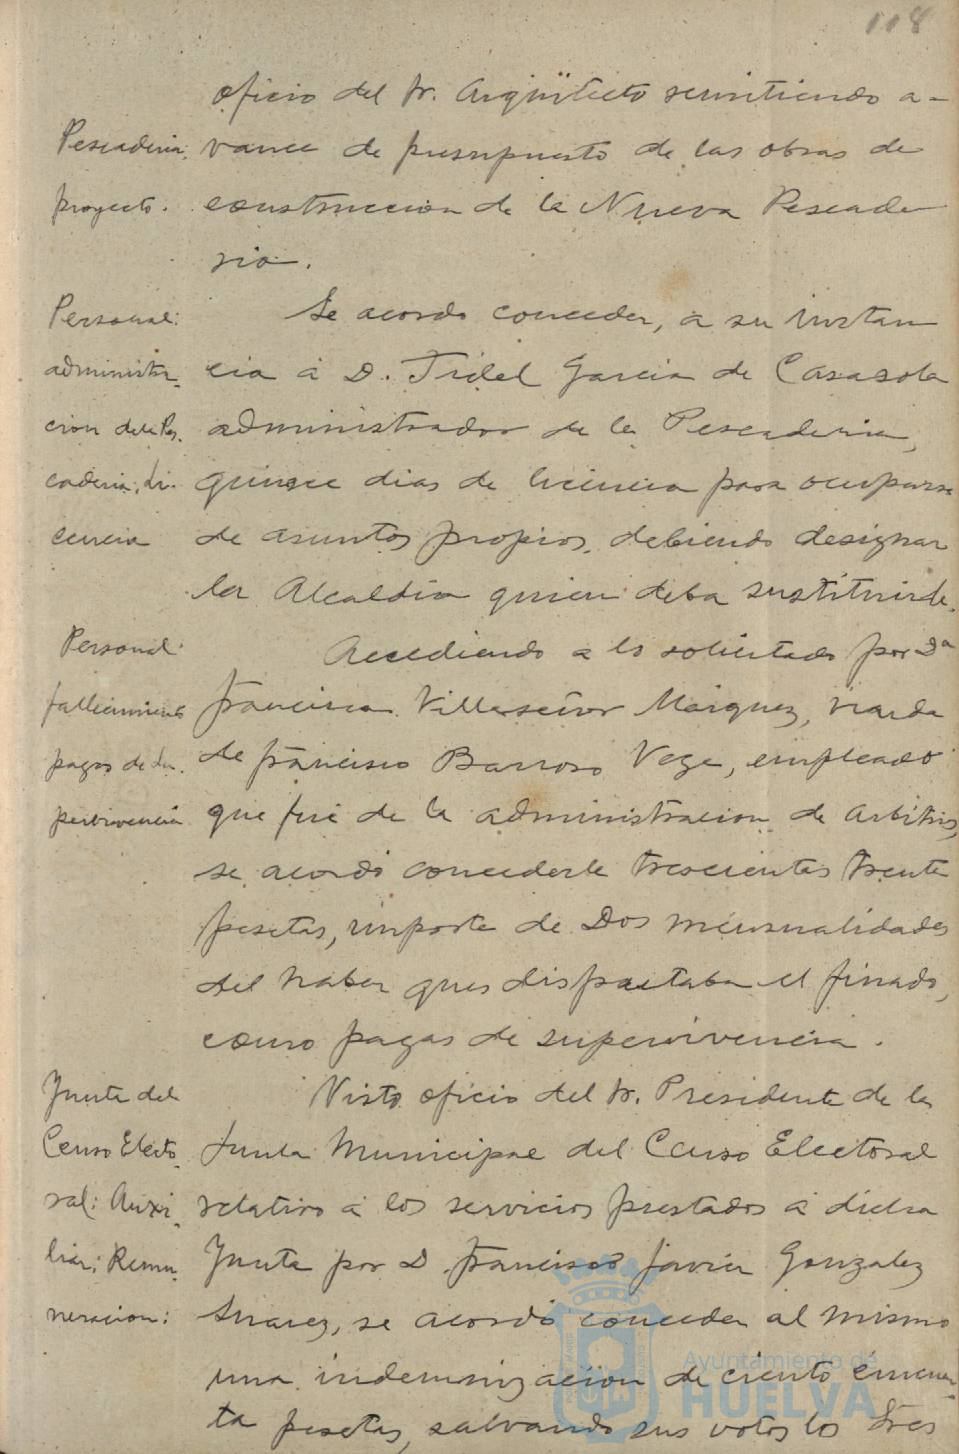 118
oficio del Sr. Arqüitecto remitiendo a-
vance de presupuesto de las obras de
construccion de la Nueva Pescade
ria.
Pescaderia:
proyecto.
Se acordó conceder, a su instan
cia á D. Fidel Garcia de Casasola
administrador de la Pescaderia,
quince dias de licencia para ocuparse
de asuntos propios, debiendo designar
la Alcaldia quien deba sustituirle.
Personal:
administra-
cion de la Pes-
caderia; Li-
cencia
Accediendo a lo solicitado por Dª
Francisca Villaseñor Márquez, viuda
de Francisco Barroso Vega, empleado
que fué de la administracion de arbitrios,
se acordó concederle trescientas trenta
pesetas, importe de Dos mensualidades
del haber que disfrutaba el finado,
como pagas de supervivencia.
Personal:
fallecimiento
pagas de Su-
pervivencia
Visto oficio del Sr. Presidente de la
Junta Municipal del Censo Electoral
relativo á los servicios prestados a dicha
Junta por D. Francisco Javier Gonzalez
Suarez, se acordó conceder al mismo
una indemnizacion de ciento cincuen-
ta pesetas, salvando sus votos los tres
Junta del
Censo Electo-
ral: Auxi-
liar: Remu-
neracion:
Ayuntamiento de
HUELVA